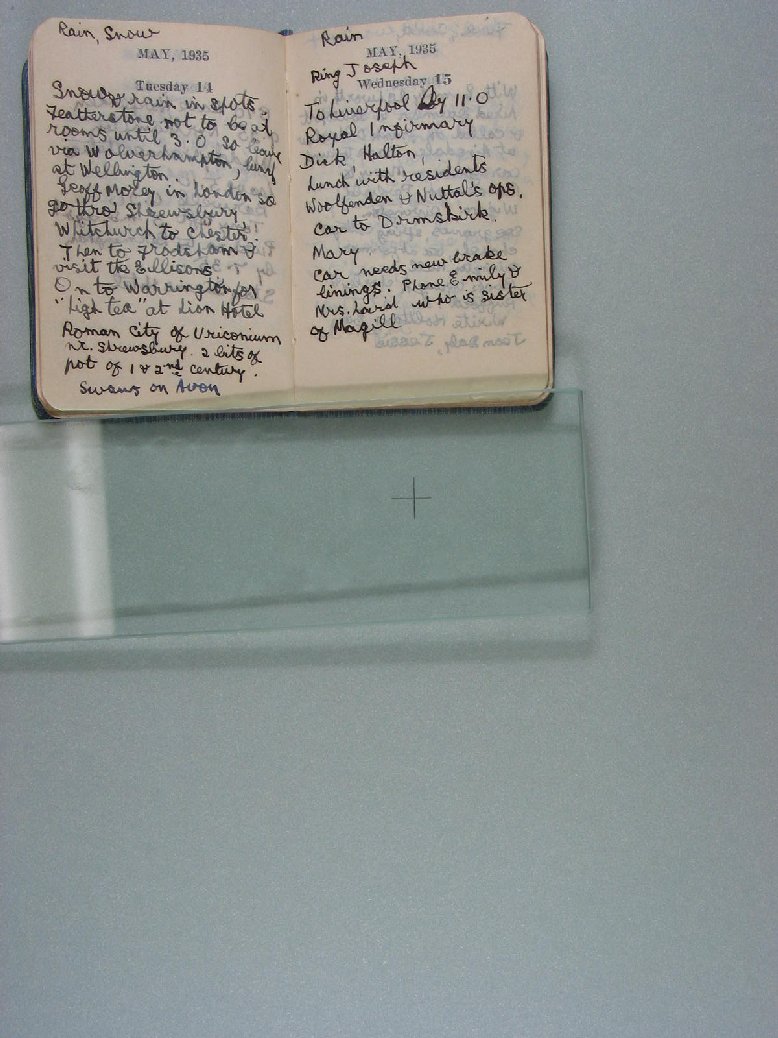 Rain, Snow
MAY, 1935
Tuesday 14
Snowy rain in spots.
Featherstone not to be at
rooms until 3.0 so leave
via Wolverhampton, lunch
at Wellington.
Geoff Morey in London so
go thro' Shrewsbury
Whitchurch to Chester!
Then to Frodsham &
visit the Ellisons
On to Warrington for
"high tea" at Lion Hotel
Roman City of Uriconium
nr. Shrewsbury. 2 bits of
pot of 1 & 2nd century.
Swans on Avon
Rain
MAY, 1935
Ring Joseph
Wednesday 15
To Liverpool by 11.0
Royal Infirmary
Dick Halton,
Lunch with residents
Woolfenden & Nuttal's ops.
Car to Ormskirk.
Mary
Car needs new brake
linings. Phone Emily &
Mrs. Laird who is sister
of Magill